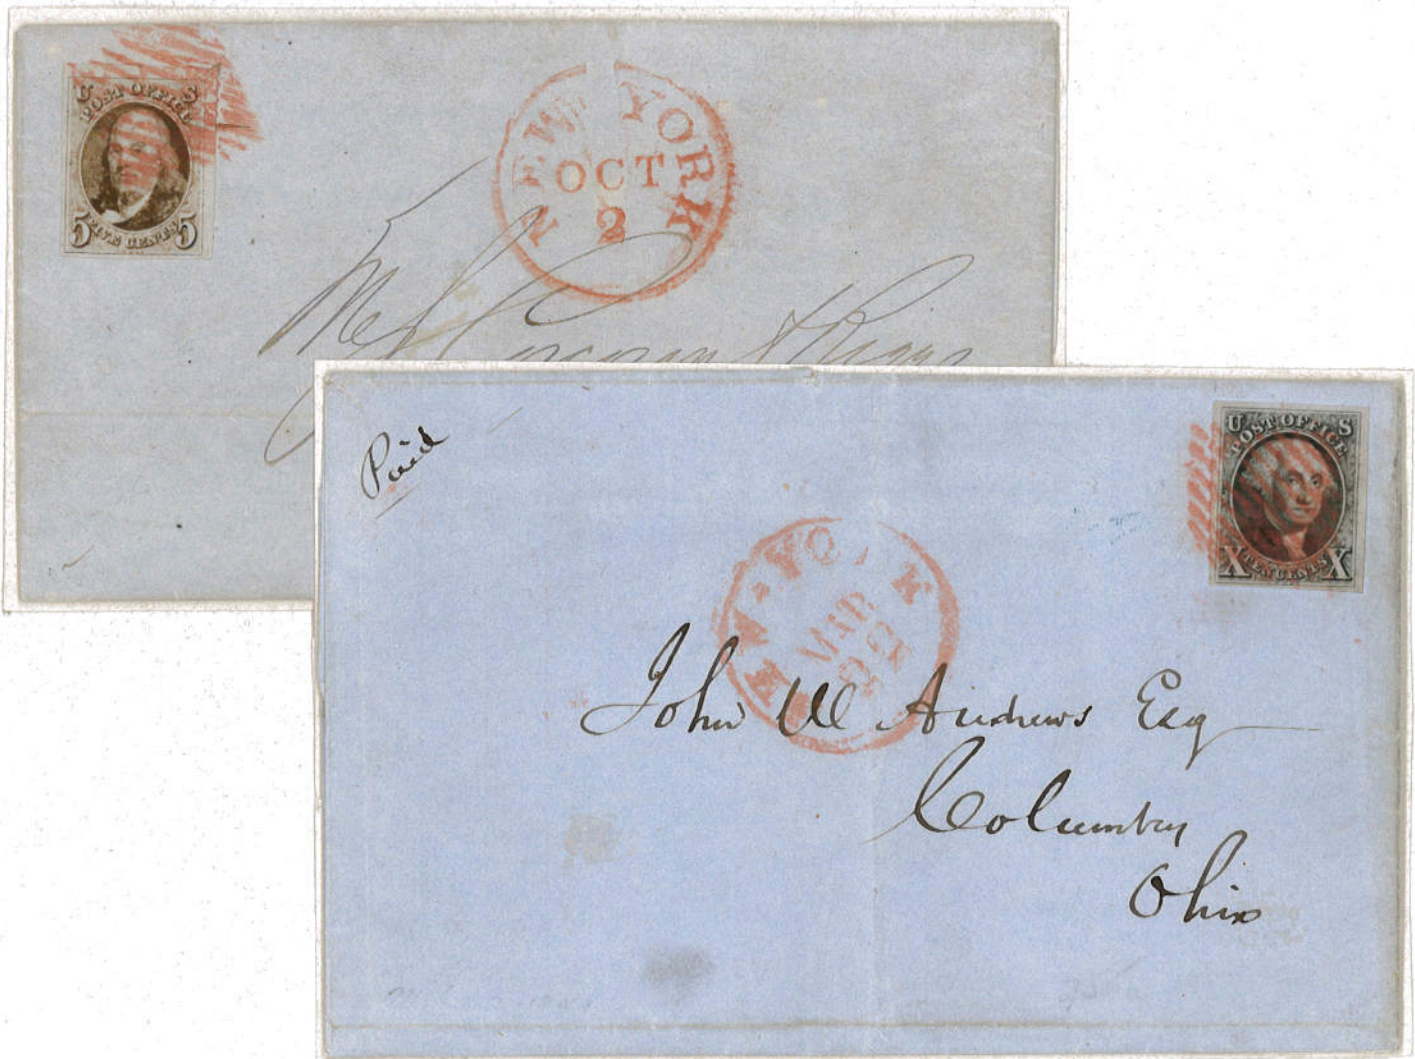 U S
POST OFFICE
5 FIVE CENTS 5
NEW YORK
OCT
2
Mess Corcoran & Riggs
Paid
U S
POST OFFICE
X TEN CENTS X
NEW-YORK
MAR
John W Andrews Esq
Columbus
Ohio